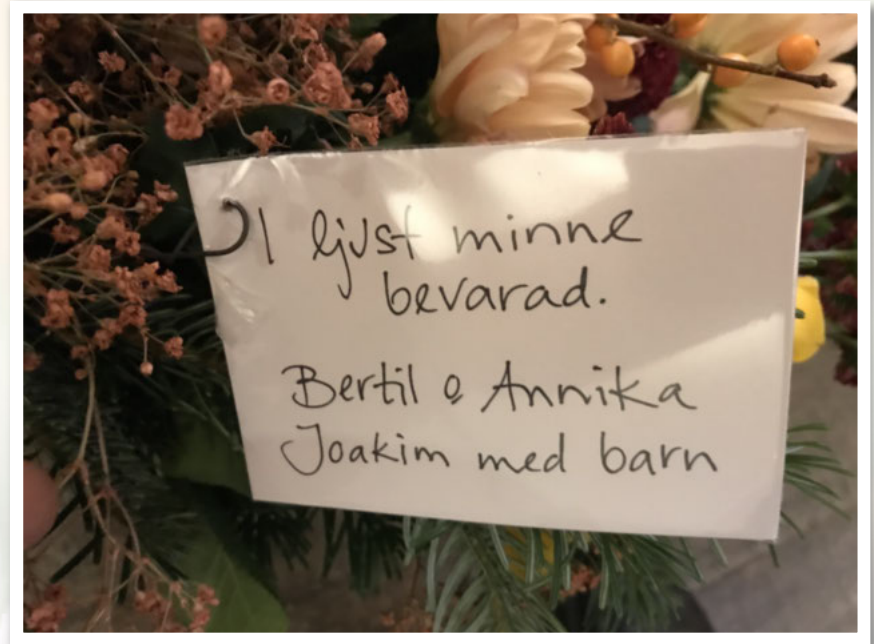 I ljust minne
bevarad.
Bertil o Annika
Joakim med barn